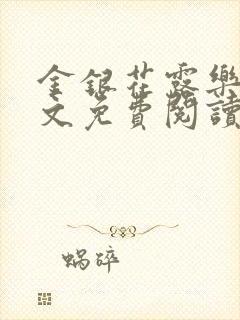 金銀花露樂
文免費閱讀
蜗碎